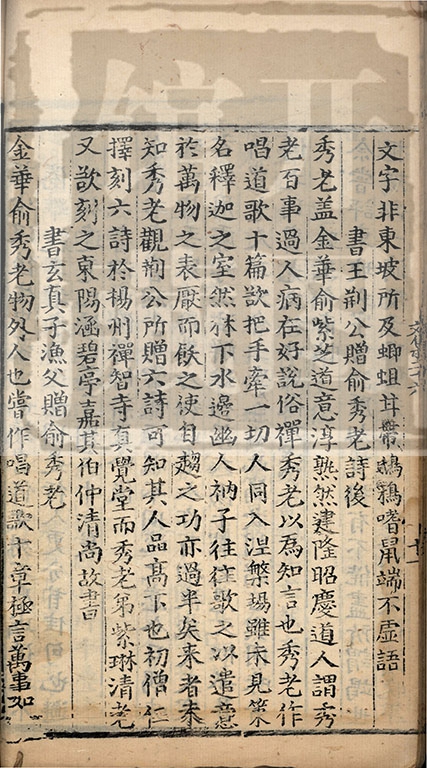 文字非東坡所及蝍蛆甘帶鴟鴉嗜鼠端不虛語
書王荆公贈俞秀老詩後
秀老盖金華俞紫芝道意淳熟然建隆昭慶道人謂秀
老百事過人病在好說俗禪秀老以爲知言也秀老作
唱道歌十篇欲把手牽一切人同入涅槃場雖未見策
名釋迦之室然林下水邊幽人衲子往往歌之以遣意
於萬物之表厭而飫之使自趨之功亦過半矣来者未
知秀老觀荆公所贈六詩可知其人品高下也初僧仁
擇刻六詩於揚州禪智寺真覺堂而秀老弟紫琳清老
又欲刻之東陽涵碧亭嘉其伯仲清尚故書
書玄真子漁父贈俞秀老
金華俞秀老物外人也嘗作唱道歌十章極言萬事如